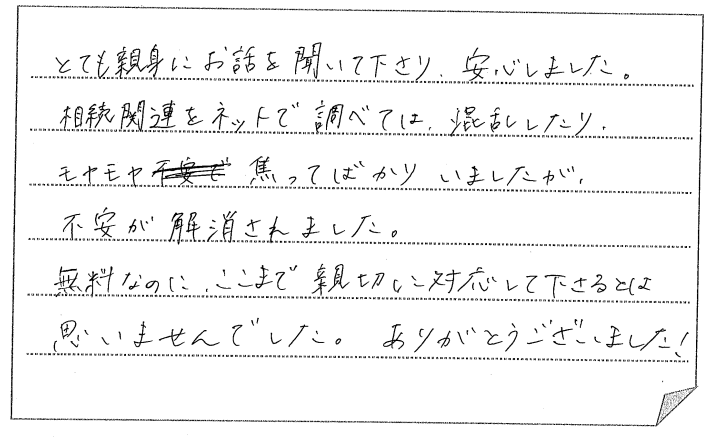 とても親身にお話を聞いて下さり、安心しました。
相続関連をネットで調べては、混乱したり、
モヤモヤ 焦ってばかりいましたが、
不安が解消されました。
無料なのに、ここまで親切に対応して下さるとは
思いませんでした。ありがとうございました！